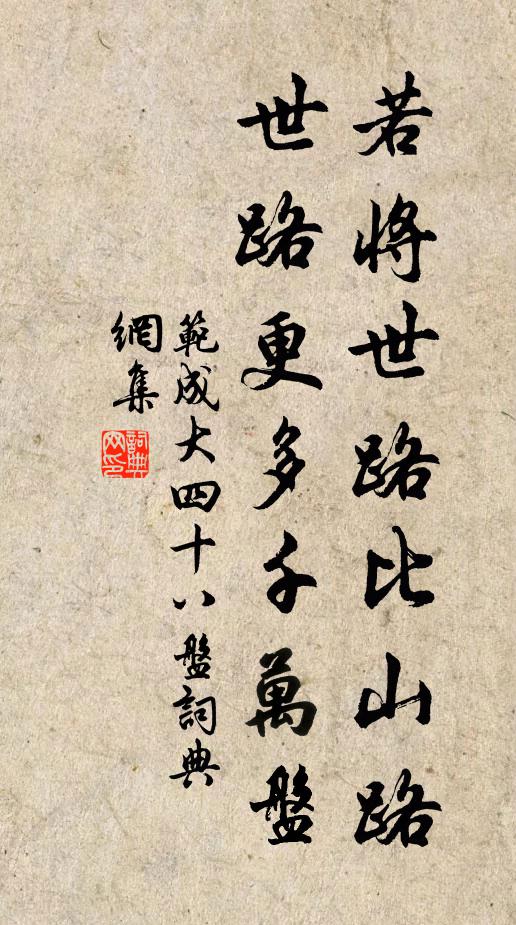 若將世路比山路
世路更多千萬盤
範成大四十八盤詞典
網集
詞典
网印